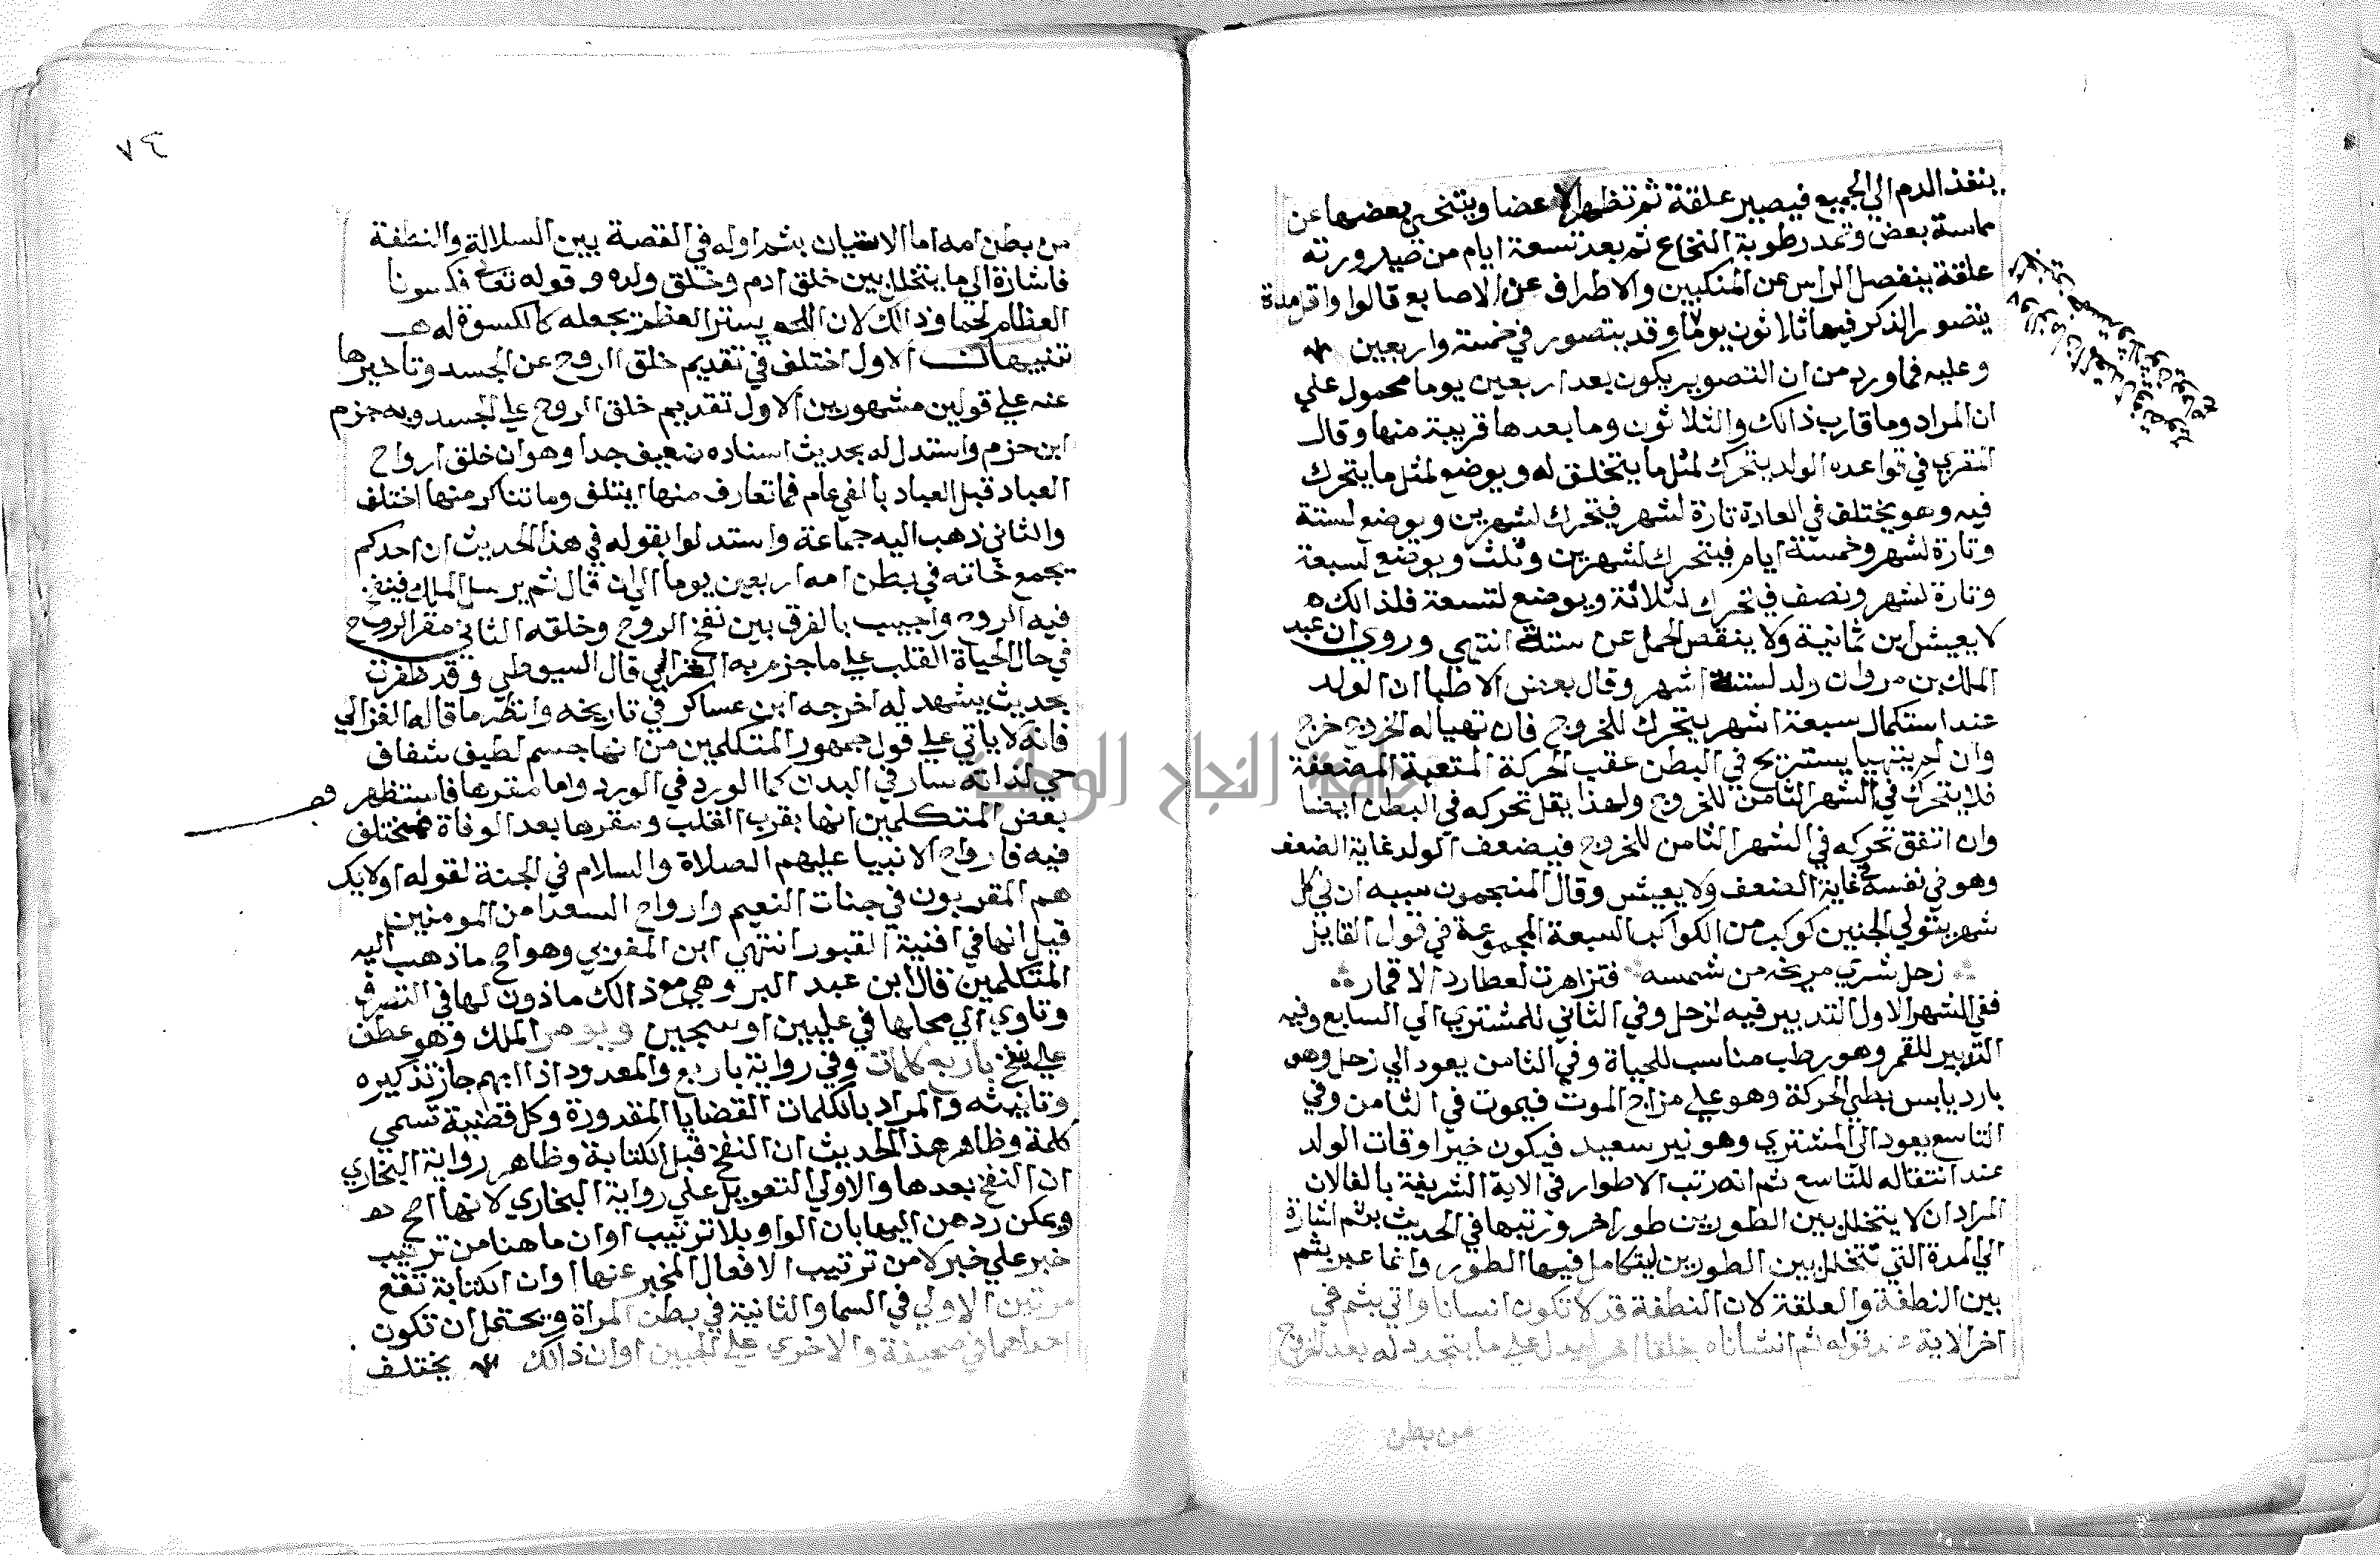 ينفذ الدم الي الجميع فيصير علقة ثم تظهر الاعضا ويتنحي بعضها عن
مماسة بعض وتمد رطوبة النخاع ثم بعد تسعة ايام من صيرورته
علقة ينفصل الراس عن المنكبين والاطراف عن الاصابع قالوا واقل مدة
يتصور الذكر فيها ثلاثون يوما وقد يتصور في خمسة واربعين
وعليه فما ورد من ان التصوير يكون بعد اربعين يوما محمول علي
ان المراد وما قارب ذالك والثلاثون وما بعدها قريبة منها وقال
المقري في قواعده الولد يتحرك لمثل ما يتخلق له ويوضع لمثل ما يتحرك
فيه وهو يختلف في العادة تارة لشهر فيتحرك لشهرين ويوضع لستة
وتارة لشهر وخمسة ايام فيتحرك لشهرين وثلث ويوضع لسبعة
وتارة لشهر ونصف فيتحرك لثلاثة ويوضع لتسعة فلذالك
لا يعيش ابن ثمانية ولا ينقص الحمل عن ستة انتهي وروي ان عبد
الملك بن مروان ولد لستة اشهر وقال بعض الاطبا ان الولد
عند استكمال سبعة اشهر يتحرك للخروج فان تهيا له الخروج خرج
وان لم يتهيا يستريح في البطن عقب الحركة المتعبة المضعفة
فلا يتحرك في الشهر الثامن للخروج ولهذا يقل تحركه في البطن ايضا
وان اتفق تحركه في الشهر الثامن للخروج فيضعف الولد غاية الضعف
وهو في نفسه في غاية الضعف ولا يعيش وقال المنجمون سببه ان في كل
شهر يتولي الجنين كوكب من الكواكب السبعة المجموعة في قول القايل
زحل شري مريخه من شمسه فتزاهرت لعطارد الاقمار
ففي الشهر الاول التدبير فيه لزحل وفي الثاني للمشتري الي السابع وفيه
التدبير للقمر وهو رطب مناسب للحياة وفي الثامن يعود الي زحل وهو
بارد يابس بطي الحركة وهو علي مزاج الموت فيموت في الثامن وفي
التاسع يعود الي المشتري وهو نير سعيد فيكون خير اوقات الولد
عند انتقاله للتاسع ثم انه رتب الاطوار في الاية الشريفة بالفا لان
المراد ان لا يتخلل بين الطورين طور اخر ورتبها في الحديث بثم اشارة
الي المدة التي تتخلل بين الطورين ليتكامل فيها الطور وانما عبر بثم
بين النطفة والعلقة لان النطفة قد لا تكون انسانا واتي بثم في
اخر الاية عند قوله ثم انشاناه خلقا اخر ليدل علي ما يتجدد له بعد الخروج
من بطن
٤٨
من بطن امه اما الاتيان بثم اوله في القصة بين السلالة والنطفة
فاشارة الي ما يتخلل بين خلق ادم وخلق ولده وقوله تعالي فكسونا
العظام لحما وذالك لان اللحم يستر العظم بجعله كالكسوة له
تنبيهات الاول اختلف في تقديم خلق الروح عن الجسد وتاخيرها
عنه علي قولين مشهورين الاول تقديم خلق الروح علي الجسد وبه جزم
ابن حزم واستدل له بحديث اسناده ضعيف جدا وهو ان خلق ارواح
العباد قبل العباد بالفي عام فما تعارف منها ايتلف وما تناكر منها اختلف
والثاني ذهب اليه جماعة واستدلوا بقوله في هذا الحديث ان احدكم
يجمع خلقه في بطن امه اربعين يوما الي ان قال ثم يرسل الملك فينفخ
فيه الروح واجيب بالفرق بين نفخ الروح وخلقه الثاني مقر الروح
في حال الحياة القلب علي ما جزم به الغزالي قال السيوطي وقد ظفرت
بحديث يشهد له اخرجه ابن عساكر في تاريخه وانظر ما قاله الغزالي
فانه لا ياتي علي قول جمهور المتكلمين من انها جسم لطيف شفاف
حي لذاته سار في البدن كما الورد في الورد واما مقرها فاستظهر
بعض المتكلمين انها بقرب القلب ومقرها بعد الوفاة فمختلف
فيه فارواح الانبيا عليهم الصلاة والسلام في الجنة لقوله اولايك
هم المقربون في جنات النعيم وارواح السعدا من المومنين
قيل انها في افنية القبور انتهي ابن المغوري وهو اصح ما ذهب اليه
المتكلمين قال ابن عبد البر وهي مع ذالك ماذون لها في التصرف
وتاوي الي محلها في عليين او سجين ويومر الملك وهو عطف
علي ينفخ باربع كلمات وفي رواية باربع والمعدود اذا ابهم جاز تذكيره
وتانيثه والمراد بالكلمات القضايا المقدورة وكل قضية تسمي
كلمة وظاهر هذا الحديث ان النفخ قبل الكتابة وظاهر رواية البخاري
ان النفخ بعدها والاولي التعويل علي رواية البخاري لانها اصح
ويمكن ردهن اليها بان الواو بلا ترتيب او ان ما هنا من ترتيب
خبر علي خبر لا من ترتيب الافعال المخبر عنها او ان الكتابة تقع
مرتين الاولي في السما والثانية في بطن المراة ويحتمل ان تكون
احداهما في صحيفة والاخري علي الجبين او ان ذالك يختلف